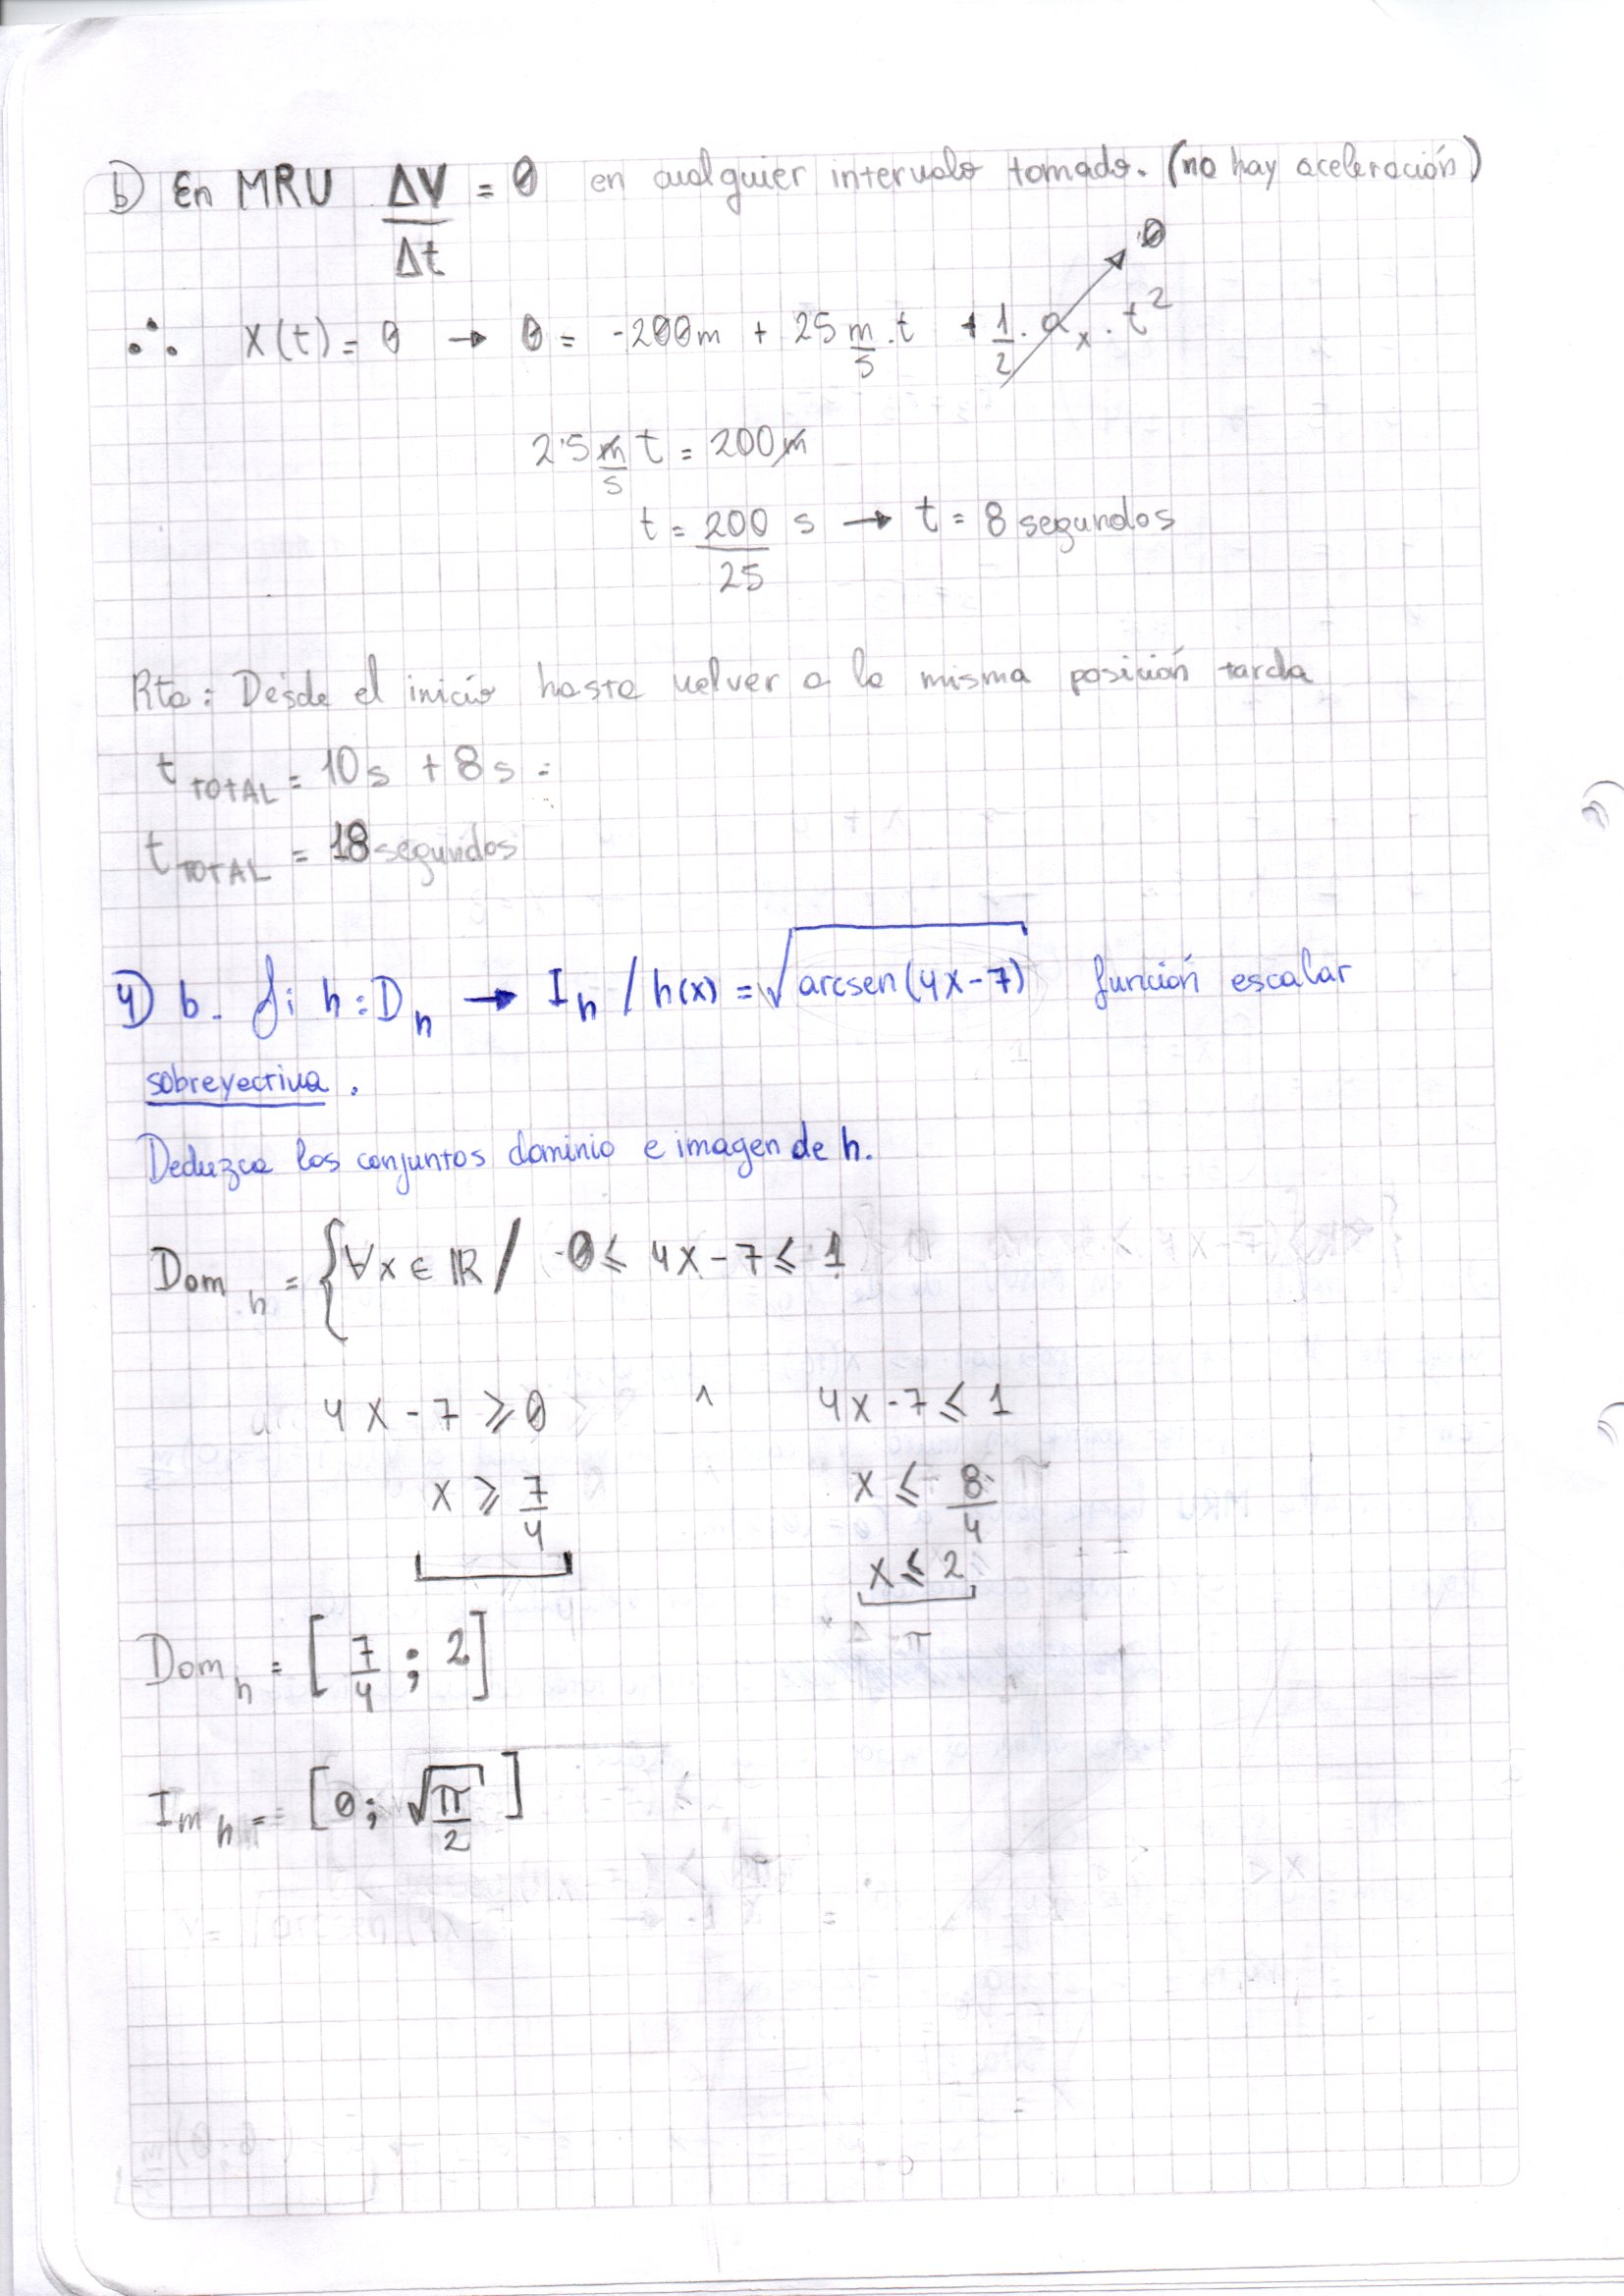 b) En MRU ΔV/Δt = 0 en cualquier intervalo tomado. (no hay aceleración)
∴ X(t) = 0 → 0 = -200m + 25 m/s .t + 1/2 . a_x . t² 0
25 m/s t = 200m
t = 200/25 s → t = 8 segundos
Rta: Desde el inicio hasta volver a la misma posición tarda
t TOTAL = 10s + 8s =
t TOTAL = 18 segundos
4) b. Si h: D_h → I_h / h(x) = √(arcsen(4x-7)) función escalar
sobreyectiva.
Deduzca los conjuntos dominio e imagen de h.
Dom_h = { ∀x ∈ ℝ / 0 ≤ 4x-7 ≤ 1
4x - 7 ≥ 0 ^ 4x-7 ≤ 1
x ≥ 7/4 x ≤ 8/4
x ≤ 2
Dom_h = [7/4 ; 2]
Im_h = [0; √π/2]